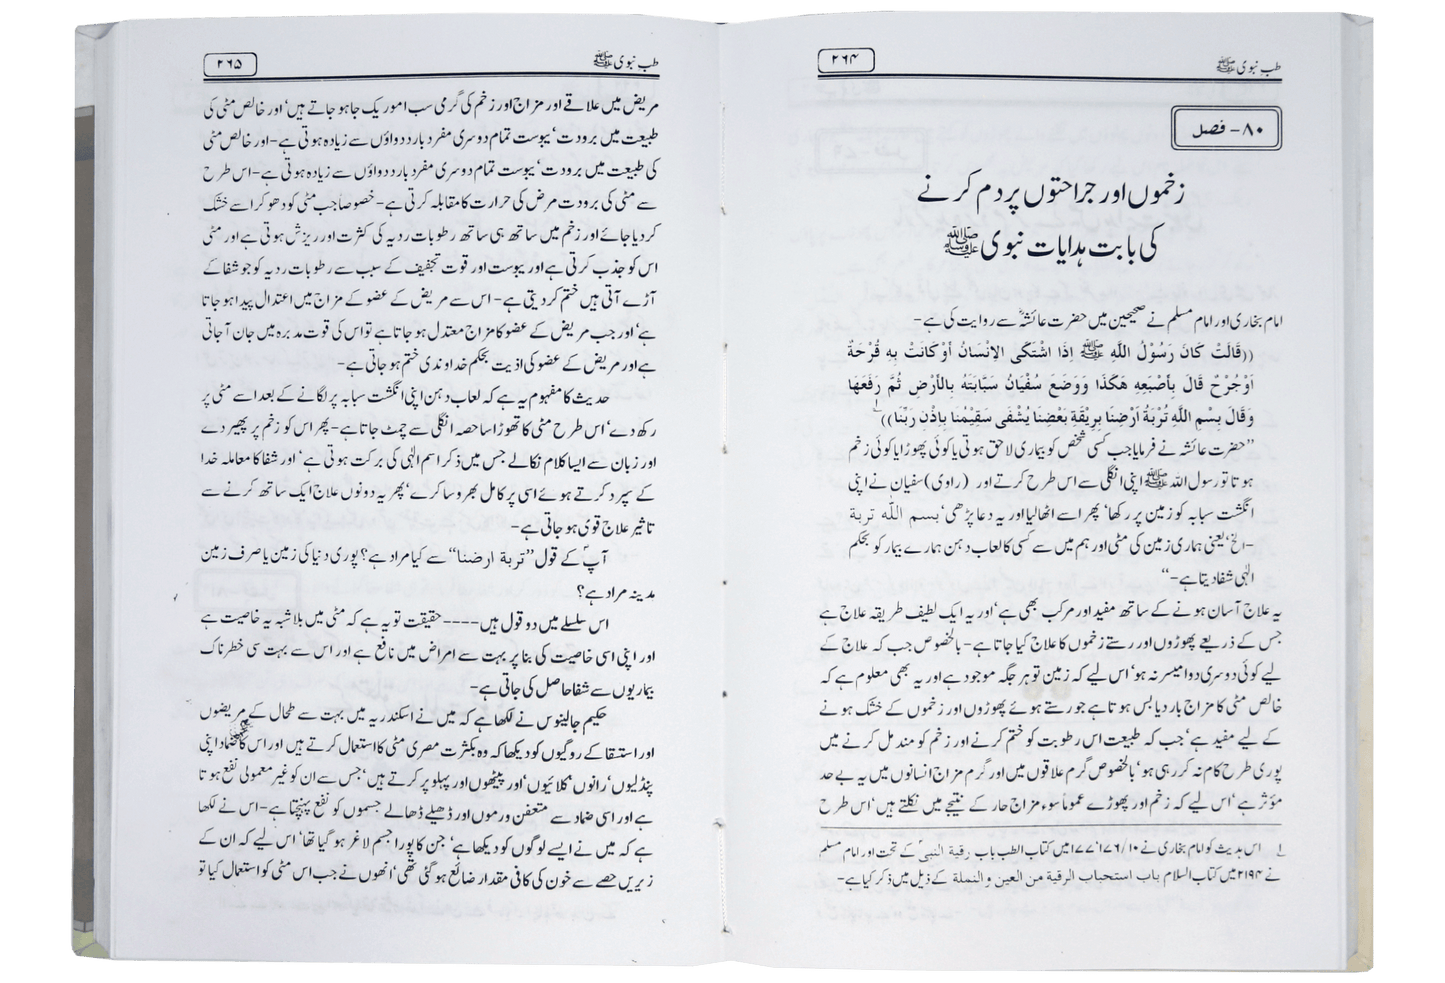 طب نبوی ﷺ
۲۶۴
۸۰- فصل
زخموں اور جراحتوں پر دم کرنے
کی بابت ہدایات نبوی ﷺ
امام بخاری اور امام مسلم نے صحیحین میں حضرت عائشہؓ سے روایت کی ہے-
((قَالَتْ كَانَ رَسُوْلُ اللَّهِ ﷺ اِذَا اشْتَكَى الاِنْسَانُ أَوْ كَانَتْ بِهِ قُرْحَةٌ
اَوْجُرْحٌ قَالَ بِأَصْبَعِهِ هَكَذَا وَوَضَعَ سُفْيَانُ سَبَّابَتَهُ بِالأَرْضِ ثُمَّ رَفَعَهَا
وَقَالَ بِسْمِ اللَّهِ تُرْبَةُ اَرْضِنَا بِرِيْقَةِ بَعْضِنَا يُشْفَى سَقِيْمُنَا بِاِذْنِ رَبِّنَا))
”حضرت عائشہ نے فرمایا جب کسی شخص کو بیماری لاحق ہوتی یا کوئی پھوڑا یا کوئی زخم
ہوتا تو رسول اللہ ﷺ اپنی انگلی سے اس طرح کرتے اور (راوی) سفیان نے اپنی
انگشت سبابہ کو زمین پر رکھا‘ پھر اسے اٹھا لیا اور یہ دعا پڑھی‘ بسم الله تربة
-الخ‘ یعنی ہماری زمین کی مٹی اور ہم میں سے کسی کا لعاب دہن ہمارے بیمار کو بحکم
الٰہی شفا دیتا ہے-“
یہ علاج آسان ہونے کے ساتھ مفید اور مرکب بھی ہے‘ اور یہ ایک لطیف طریقہ علاج ہے
جس کے ذریعے پھوڑوں اور رستے زخموں کا علاج کیا جاتا ہے- بالخصوص جب کہ علاج کے
لیے کوئی دوسری دوا میسر نہ ہو‘ اس لیے کہ زمین تو ہر جگہ موجود ہے اور یہ بھی معلوم ہے کہ
خالص مٹی کا مزاج بارد یابس ہوتا ہے جو رستے ہوئے پھوڑوں اور زخموں کے خشک ہونے
کے لیے مفید ہے‘ جب کہ طبیعت اس رطوبت کو ختم کرنے اور زخم کو مندمل کرنے میں
پوری طرح کام نہ کر رہی ہو‘ بالخصوص گرم علاقوں میں اور گرم مزاج انسانوں میں یہ بے حد
مؤثر ہے‘ اس لیے کہ زخم اور پھوڑے عموما سوء مزاج حار کے نتیجے میں نکلتے ہیں‘ اس طرح
۱ اس حدیث کو امام بخاری نے ۱۰/ ۱۷۶‘ ۱۷۷ میں کتاب الطب باب رقية النبي کے تحت اور امام مسلم
نے ۲۱۹۴ میں کتاب السلام باب استحباب الرقية من العين والنملة کے ذیل میں ذکر کیا ہے-
طب نبوی ﷺ
۲۶۵
مریض میں علاقے اور مزاج اور زخم کی گرمی سب امور یک جا ہو جاتے ہیں‘ اور خالص مٹی کی
طبیعت میں برودت‘ یبوست تمام دوسری مفرد بارد دواؤں سے زیادہ ہوتی ہے- اور خالص مٹی
کی طبیعت میں برودت‘ یبوست تمام دوسری مفرد بارد دواؤں سے زیادہ ہوتی ہے- اس طرح
سے مٹی کی برودت مرض کی حرارت کا مقابلہ کرتی ہے- خصوصا جب مٹی کو دھو کر اسے خشک
کر دیا جائے اور زخم میں ساتھ ہی ساتھ رطوبات ردیہ کی کثرت اور ریزش ہوتی ہے اور مٹی
اس کو جذب کرتی ہے اور یبوست اور قوت تجفیف کے سبب سے رطوبات ردیہ کو جو شفا کے
آڑے آتی ہیں ختم کر دیتی ہے- اس سے مریض کے عضو کے مزاج میں اعتدال پیدا ہو جاتا
ہے‘ اور جب مریض کے عضو کا مزاج معتدل ہو جاتا ہے تو اس کی قوت مدبرہ میں جان آ جاتی
ہے اور مریض کے عضو کی اذیت بحکم خداوندی ختم ہو جاتی ہے-
حدیث کا مفہوم یہ ہے کہ لعاب دہن اپنی انگشت سبابہ پر لگانے کے بعد اسے مٹی پر
رکھ دے‘ اس طرح مٹی کا تھوڑا سا حصہ انگلی سے چمٹ جاتا ہے- پھر اس کو زخم پر پھیر دے
اور زبان سے ایسا کلام نکالے جس میں ذکر اسم الٰہی کی برکت ہوتی ہے‘ اور شفا کا معاملہ خدا
کے سپرد کرتے ہوئے اسی پر کامل بھروسا کرے‘ پھر یہ دونوں علاج ایک ساتھ کرنے سے
تاثیر علاج قوی ہو جاتی ہے-
آپؐ کے قول ”تربة ارضنا“ سے کیا مراد ہے؟ پوری دنیا کی زمین یا صرف زمین
مدینہ مراد ہے؟
اس سلسلے میں دو قول ہیں---- حقیقت تو یہ ہے کہ مٹی میں بلاشبہ یہ خاصیت ہے
اور اپنی اسی خاصیت کی بنا پر بہت سے امراض میں نافع ہے اور اس سے بہت سی خطرناک
بیماریوں سے شفا حاصل کی جاتی ہے-
حکیم جالینوس نے لکھا ہے کہ میں نے اسکندریہ میں بہت سے طحال کے مریضوں
اور استسقا کے روگیوں کو دیکھا کہ وہ بکثرت مصری مٹی کا استعمال کرتے ہیں اور اس کا ضماد اپنی
پنڈلیوں‘ رانوں‘ کلائیوں‘ اور پیٹھوں اور پہلو پر کرتے ہیں‘ جس سے ان کو غیر معمولی نفع ہوتا
ہے اور اسی ضماد سے متعفن ورموں اور ڈھیلے ڈھالے جسموں کو نفع پہنچتا ہے- اس نے لکھا
ہے کہ میں نے ایسے لوگوں کو دیکھا ہے‘ جن کا پورا جسم لاغر ہو گیا تھا‘ اس لیے کہ ان کے
زیریں حصے سے خون کی کافی مقدار ضائع ہو گئی تھی‘ انھوں نے جب اس مٹی کو استعمال کیا تو